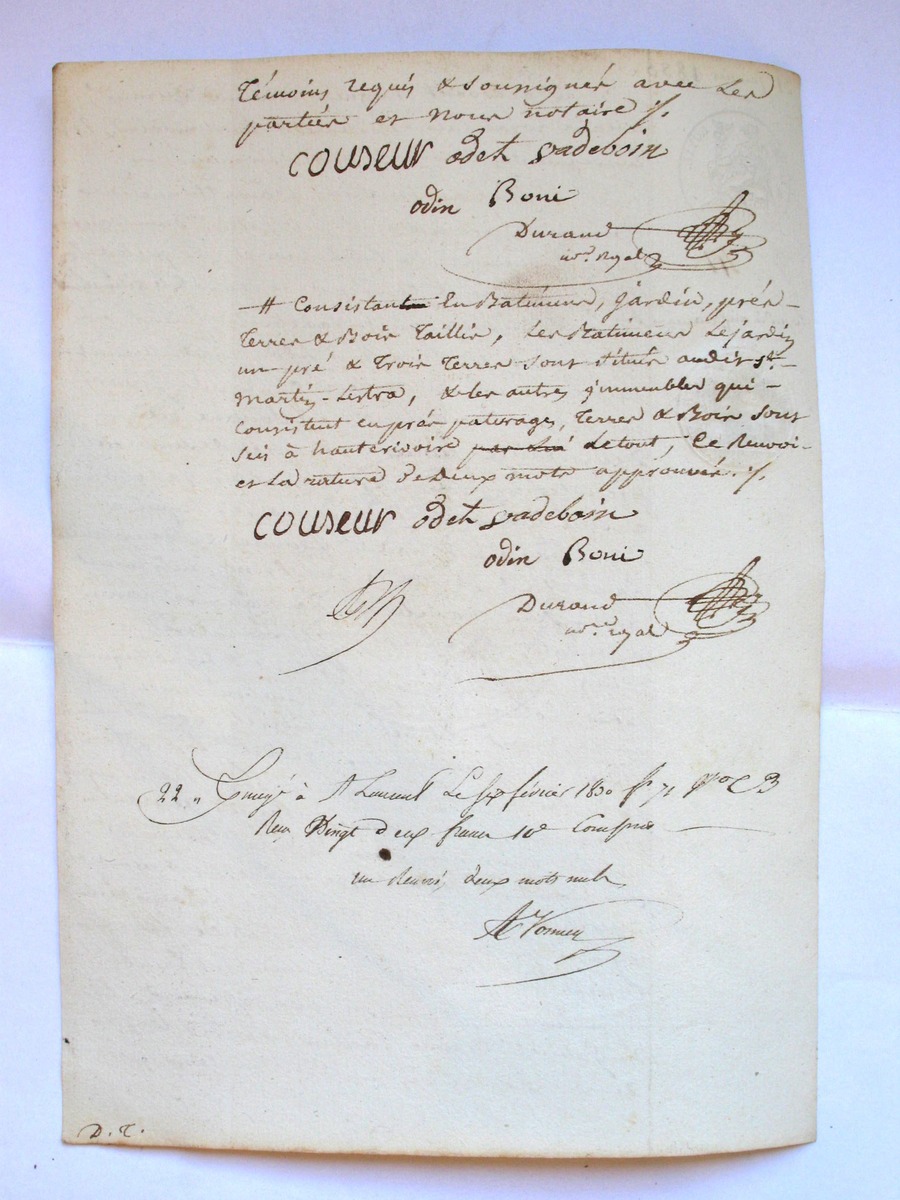 Témoins requis & soussignés avec Les
parties et nous notaire ./.
couseur odet vadeboin
odin Boni
Durand
nre. Royal
# Consistant En Batiments, Jardin, prés
Terres & Bois Taillis, Les Batiments Le jardin
un pré & Trois Terres sont situés audit St.
martin-Lestra, & les autres immeubles qui
consistent en prés paturages, Terres & Bois sont
sis à hauterivoire par lui de tout, Ce Renvoi
et la rature de Deux mots approuvés ./.
couseur odet vadeboin
odin Boni
Durand
nre. royal
22 " à Le six février 1830 fo 71 C 3
Reçu Vingt deux francs 10e Compris
un Renvoi, deux mots nuls
D. T.